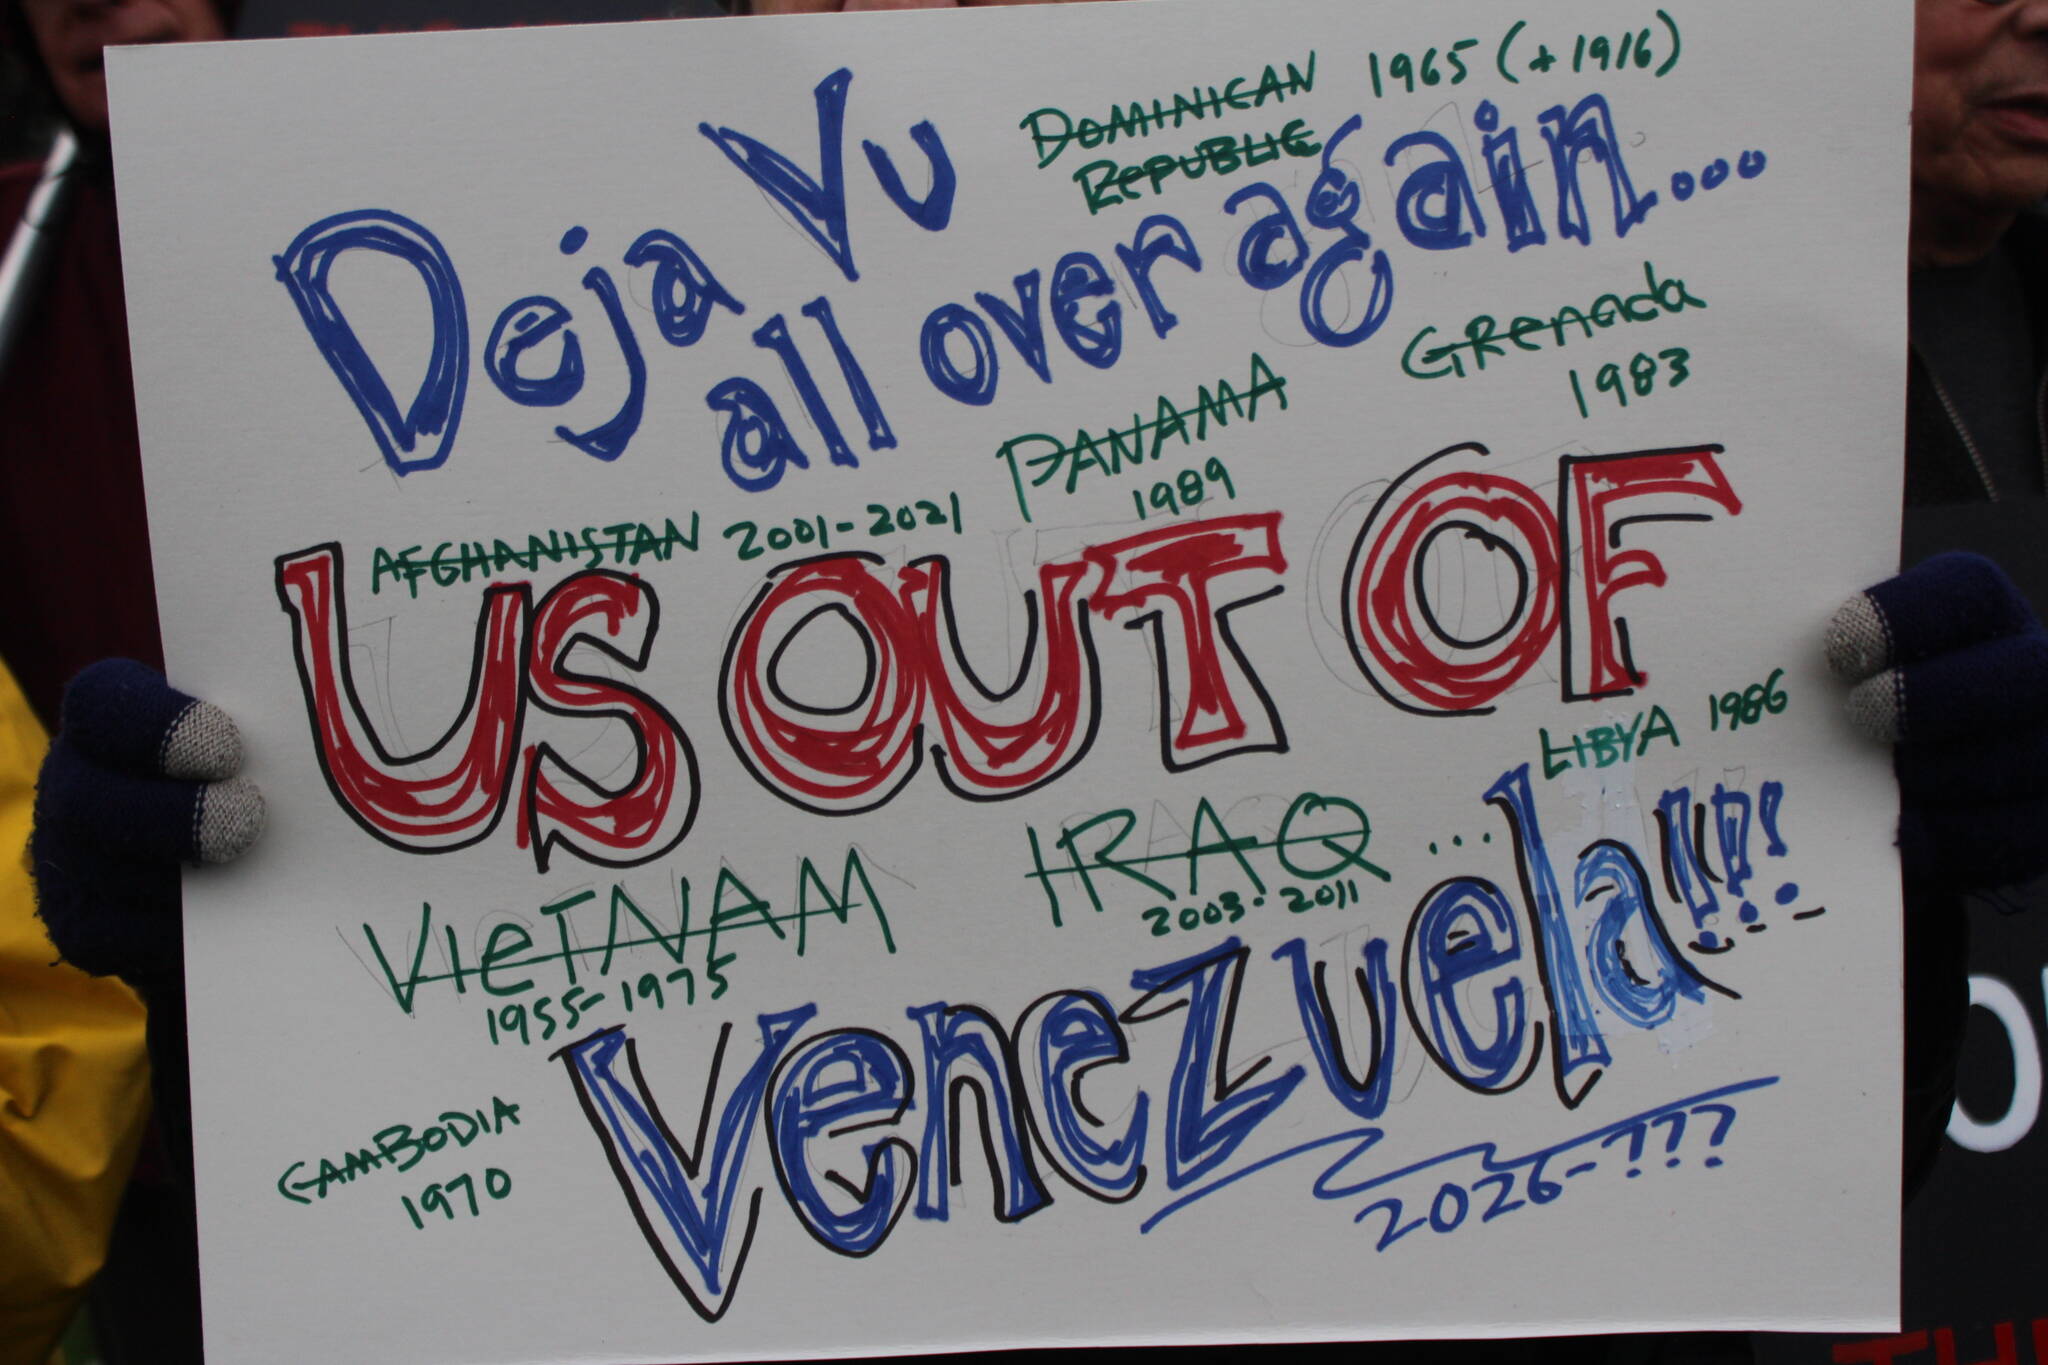 Deja Vu
DOMINICAN 1965 (+1916)
REPUBLIC
all over again...
GRenada
1983
PANAMA
1989
AFGHANISTAN 2001-2021
US OUT OF
LIBYA 1986
VIeTNAM
1955-1975
IRAQ ...
2003-2011
Venezuela!!!
2026-???
CAMBODIA
1970